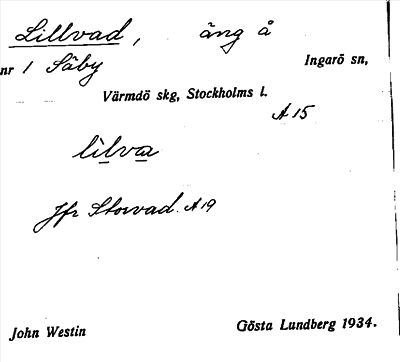 Lillvad, äng å
nr 1 Säby Ingarö sn,
Värmdö skg, Stockholms l.
A 15
lilva
Jfr Storvad. A 19
John Westin Gösta Lundberg 1934.